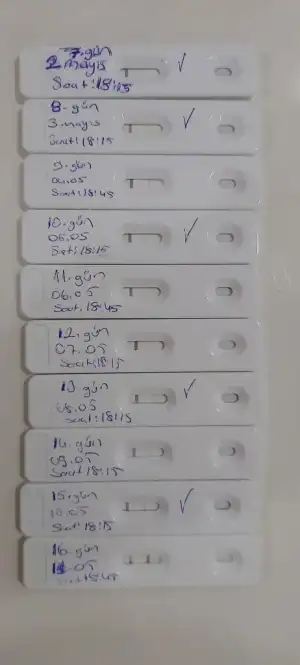 7. gün
2 mayıs
Saat: 18:15
8. gün
3. mayıs
Saat: 18:15
9. gün
04.05
Saat: 18:45
10. gün
05.05
Saat: 18:15
11. gün
06.05
Saat: 18:45
12. gün
07.05
Saat: 18:15
13 gün
08.05
Saat: 18:15
14. gün
09.05
Saat: 18:15
15. gün
10.05
Saat: 18:15
16. gün
11.05
18:45